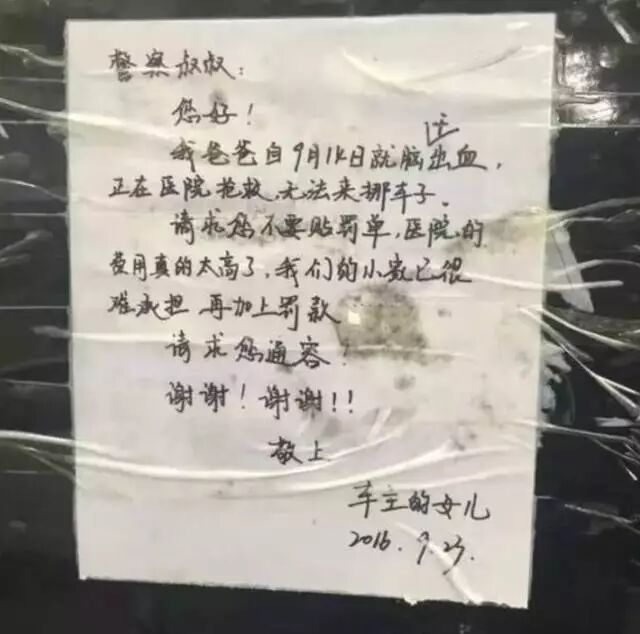 警察叔叔：
您好！
我爸爸自9月14日就脑出血，
正在医院抢救，无法来挪车子。
请求您不要贴罚单，医院的
费用真的太高了，我们的小家已很
难承担 再加上罚款……
请求您通容！
谢谢！谢谢！！
敬上
车主的女儿
2016.9.23.